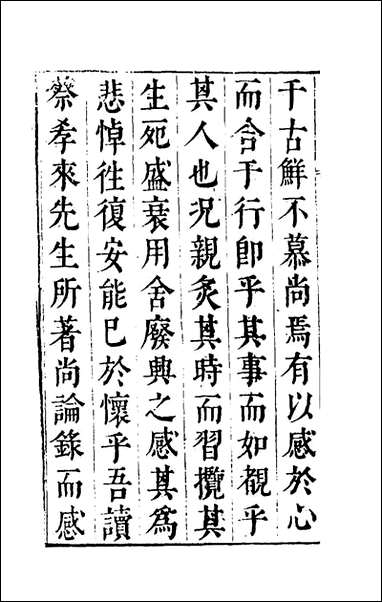 千古鮮不慕尚焉有以感於心
而合于行即乎其事而如覩乎
其人也況親炙其時而習攬其
生死盛衰用舍廢興之感其為
悲悼往復安能已於懷乎吾讀
蔡孝來先生所著尚論錄而感